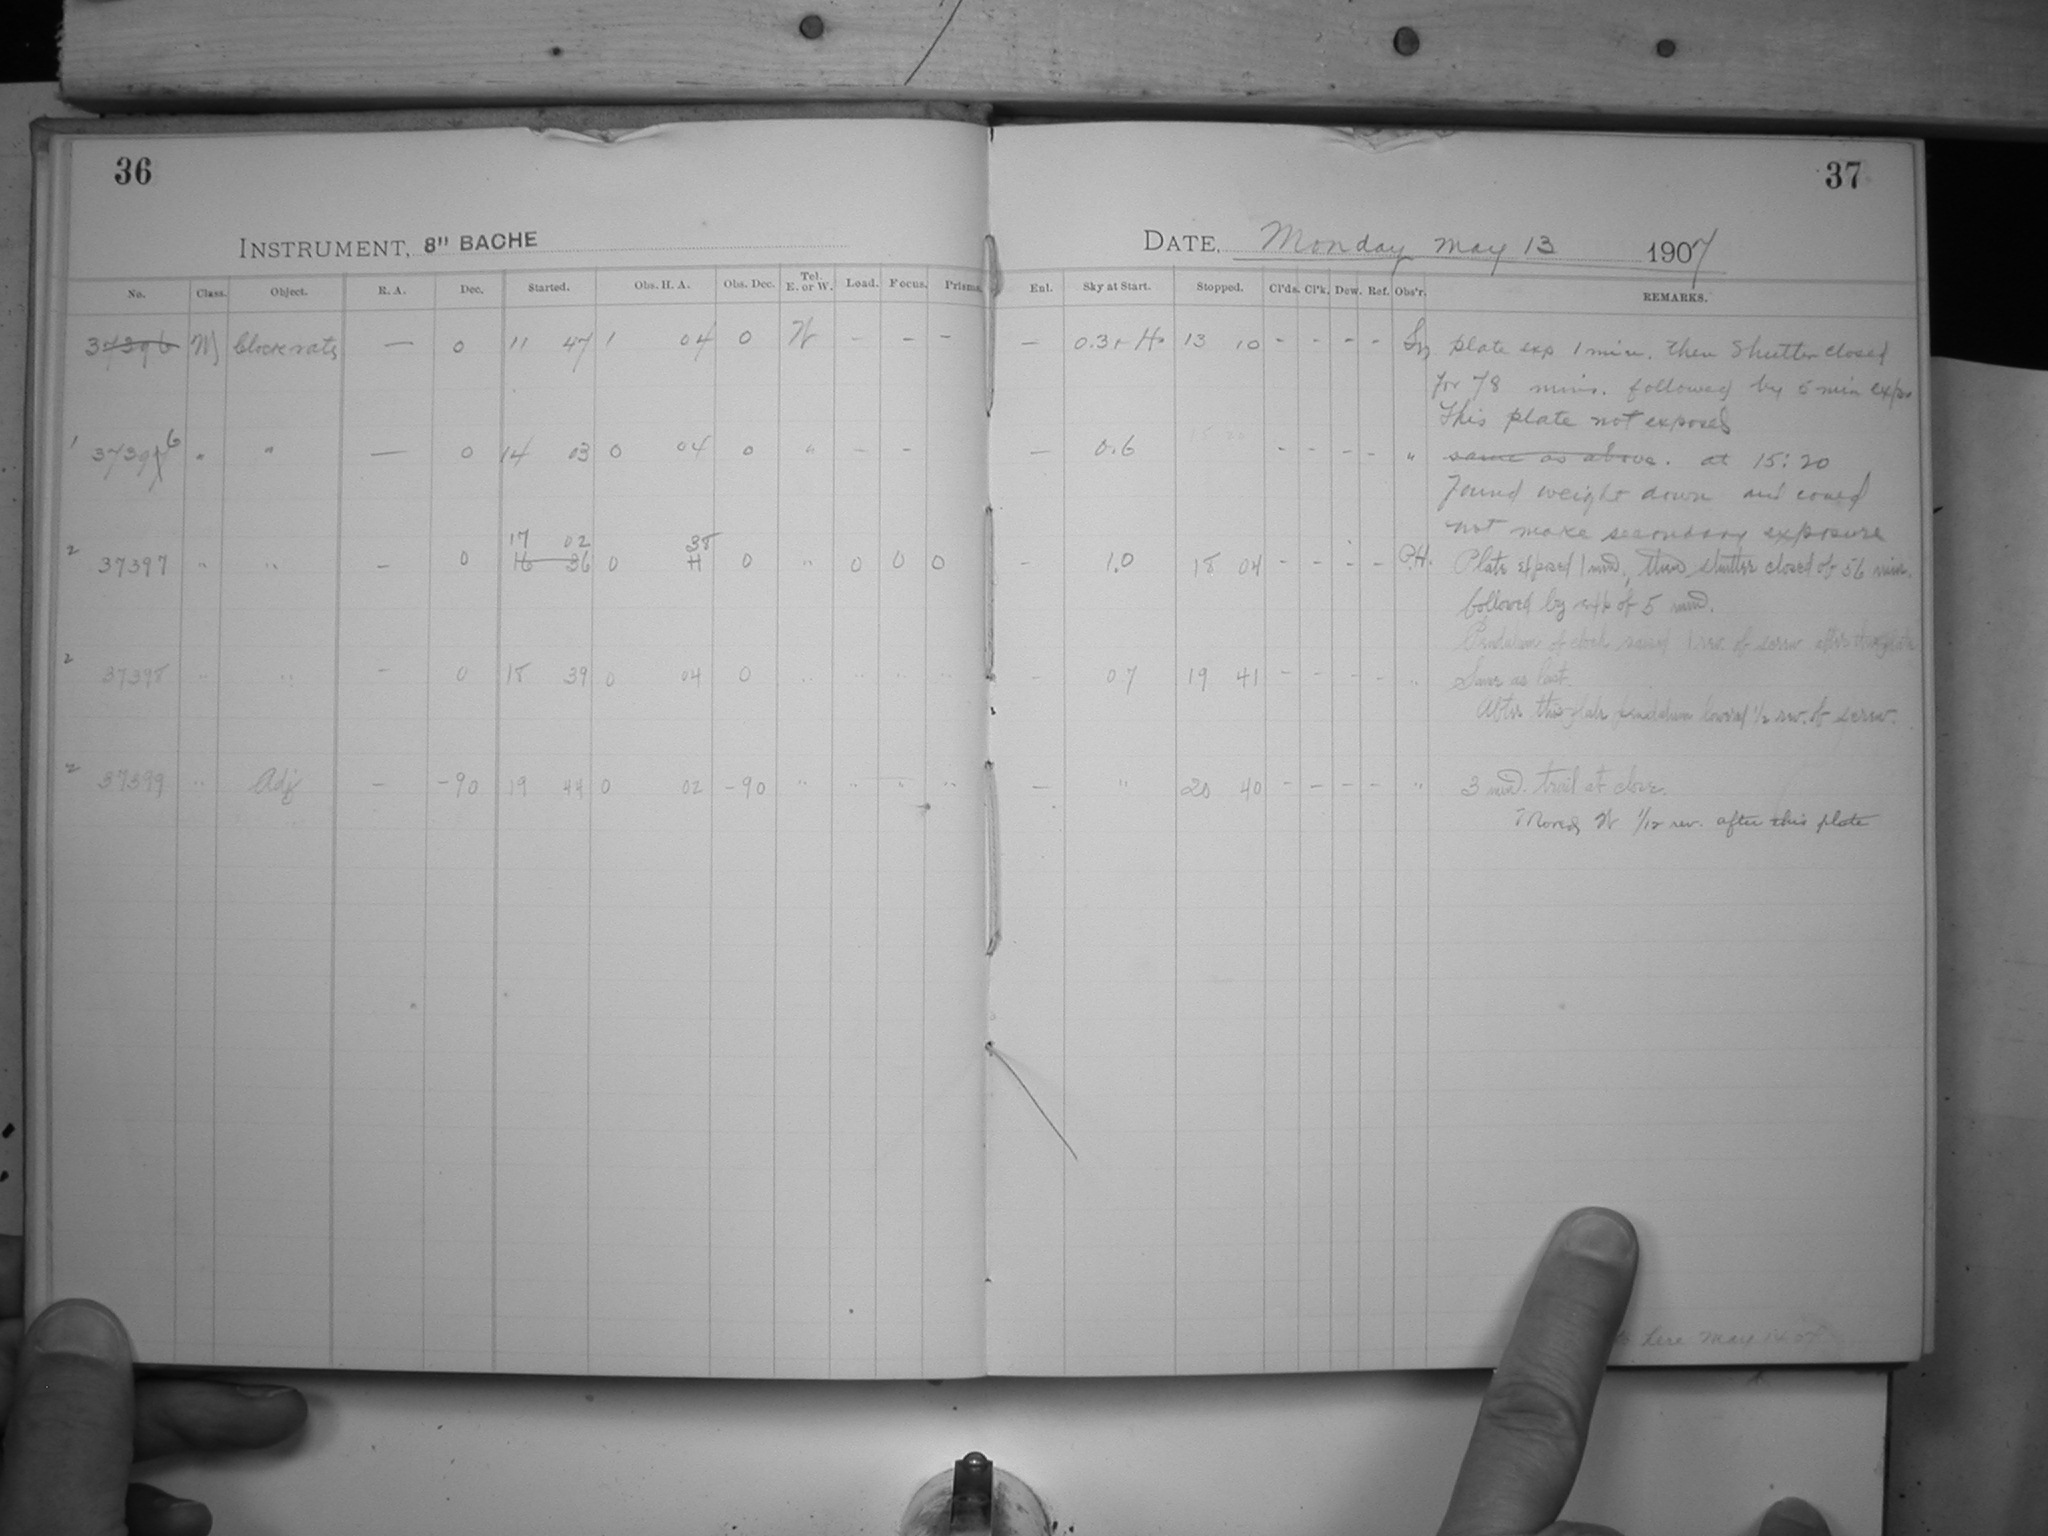 36
37
INSTRUMENT, 8" BACHE
DATE, Monday May 13 1907
No. Class. Object. R. A. Dec. Started. Obs. H. A. Obs. Dec. Tel. E. or W. Load. Focus. Prisms. Enl. Sky at Start. Stopped. Cl'ds. Cl'k. Dew. Ref. Obs'r. REMARKS.
37396 Clock rate — 0 11 47 1 04 0 W – – – — 13 10 - - - - plate exp 1 min. then shutter closed
for 78 mins. followed by 5 min expo
This plate not exposed
1 373976 " " — 0 14 03 0 04 0 " – – — 0.6 - - - - " same as above. at 15:20
Found weight down and could
not make secondary exposure
17 02 38
2 37397 " " – 0 16 36 0 11 0 " 0 0 0 – 1.0 18 04 - - - - P.H. Plate exposed 1 min., then shutter closed of 56 min.
followed by exp of 5 min.
Pendulum of clock raised 1 rev. of screw after this plate
2 37398 " " – 0 18 39 0 04 0 " " " " – 0.7 19 41 - - - - " Same as last.
After this plate pendulum lowered 1/2 rev. of screw.
2 37399 " Adj – -90 19 44 0 02 -90 " " " " — " 20 40 - - - - " 3 min. trail at close.
Moved W 1/12 rev. after this plate
here May